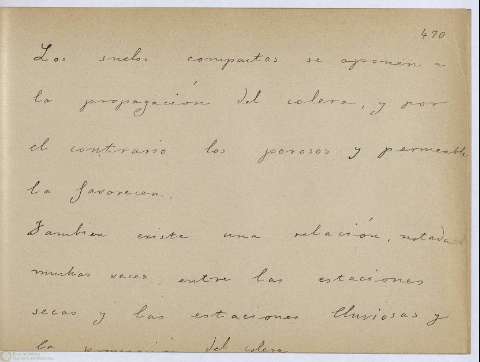 470
Los suelos compactos se oponen a
la propagación del colera, y por
el contrario los porosos y permeable
la favorecen.
Tambien existe una relación, notada
muchas veces, entre las estaciones
secas y las estaciones lluviosas y
la del colera